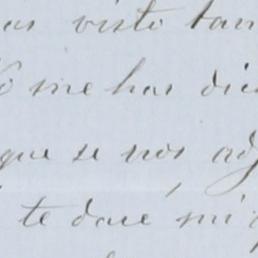 as visto tan
o me has dic
que se nos ad
te daré mi